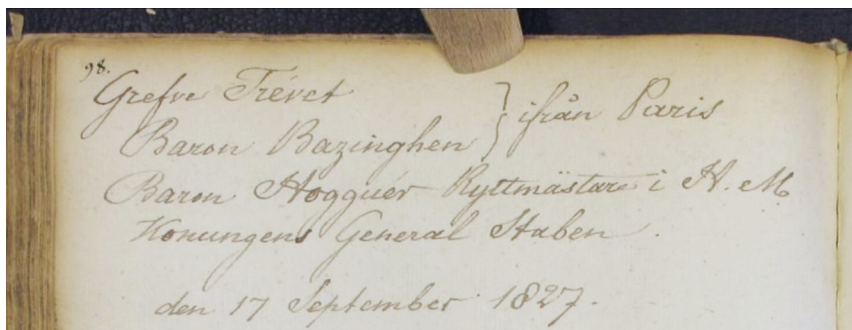 98.
Grefve Trévet
Baron Bazinghen } ifrån Paris
Baron Hogguér Ryttmästare i H. M
Konungens General Staben.
den 17 September 1827.